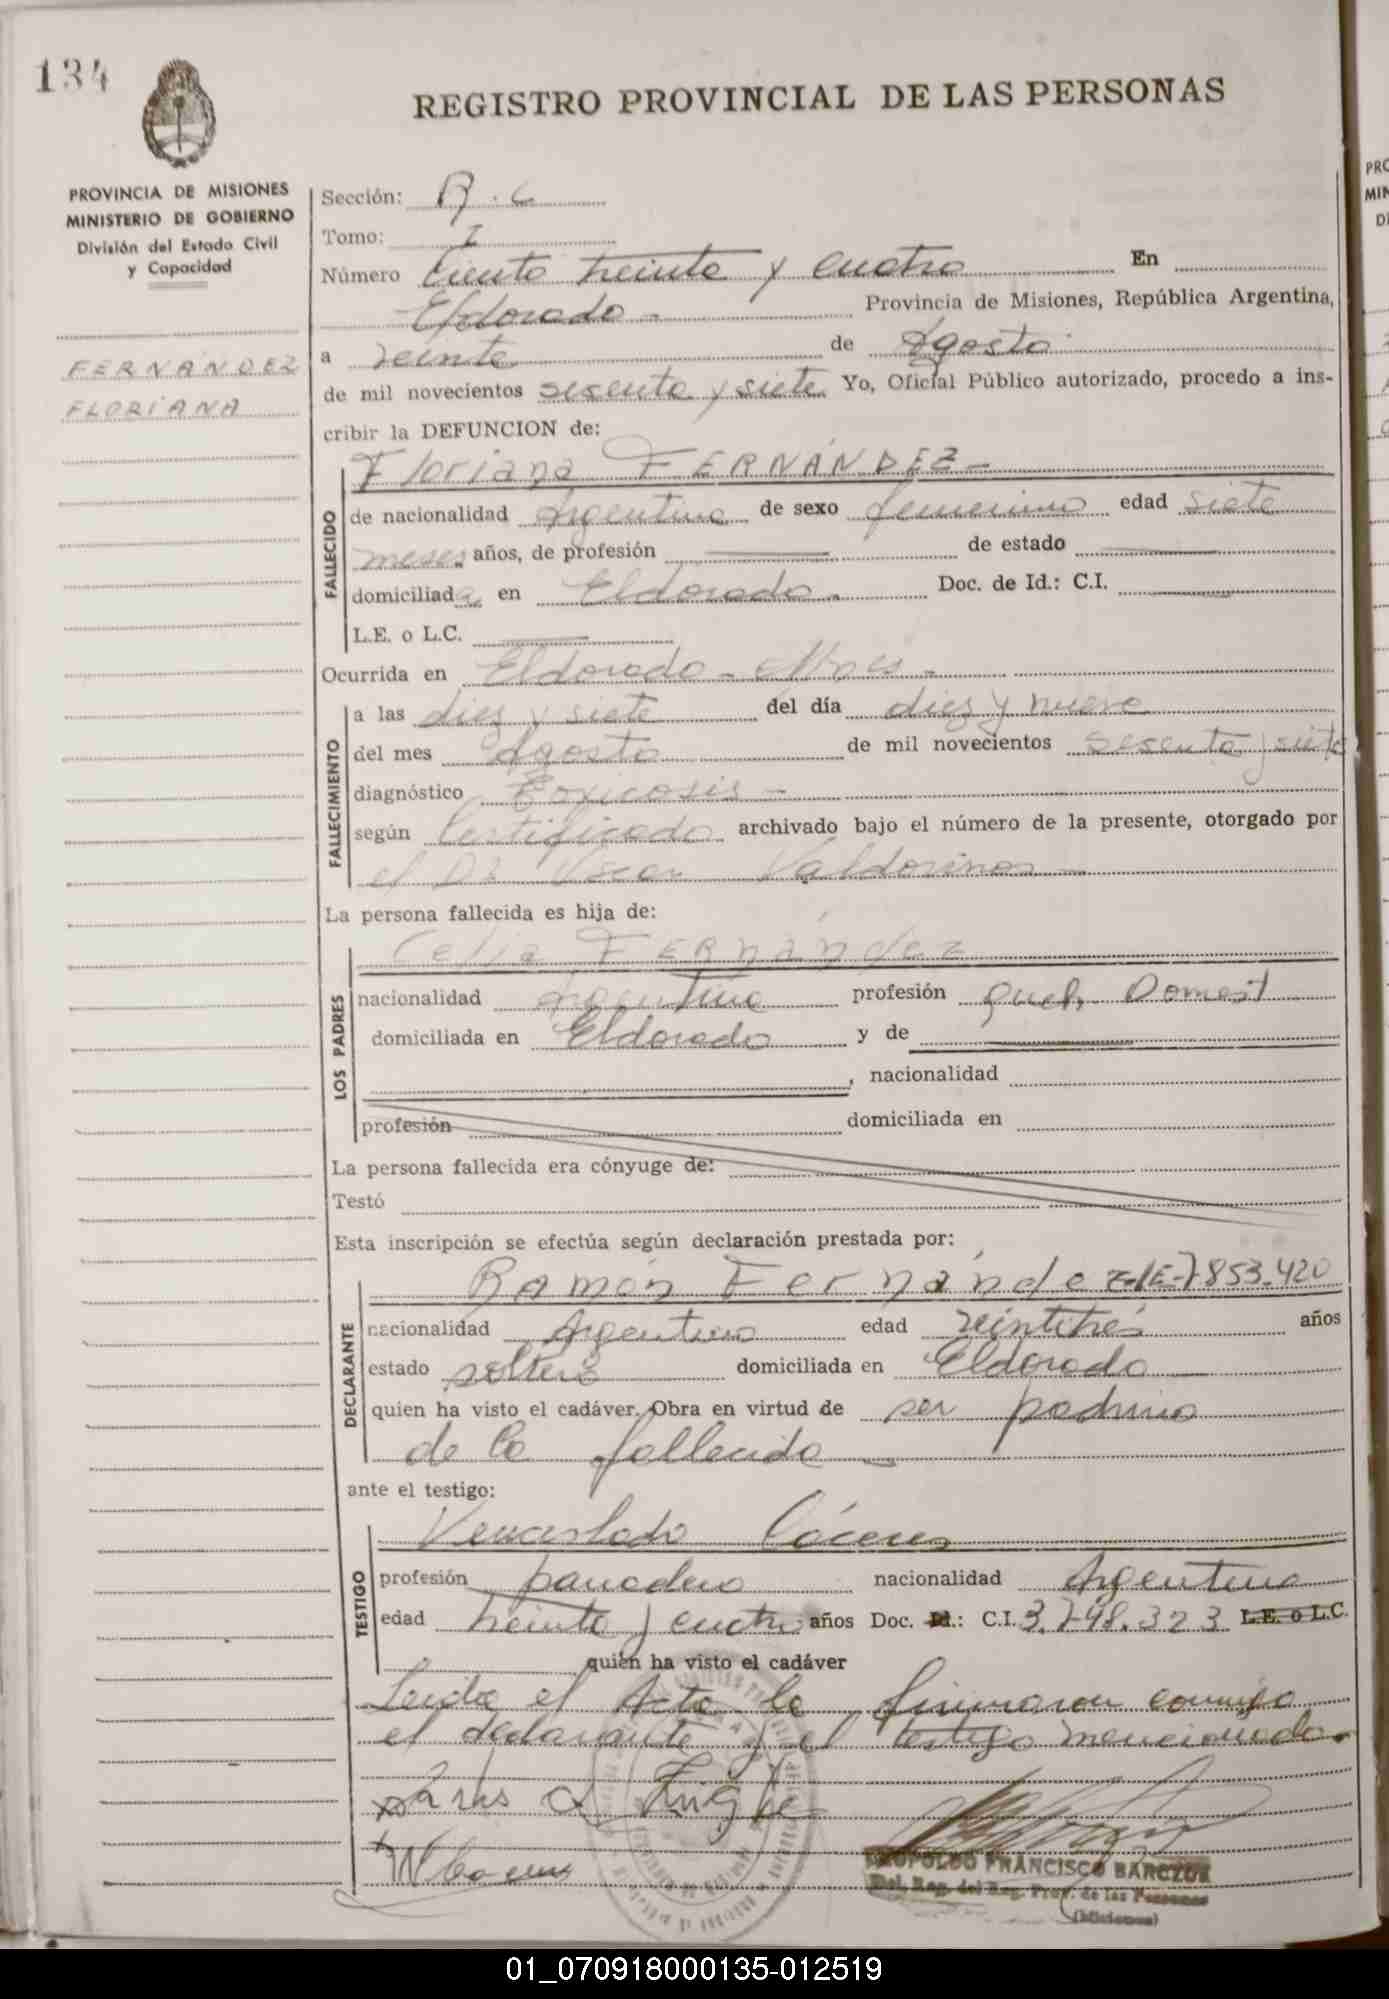 134
REGISTRO PROVINCIAL DE LAS PERSONAS
PROVINCIA DE MISIONES
MINISTERIO DE GOBIERNO
División del Estado Civil
y Capacidad
FERNÁNDEZ
FLORIANA
Sección: R.C
Tomo: I
Número Ciento treinta y cuatro En
Eldorado - Provincia de Misiones, República Argentina,
a veinte de Agosto
de mil novecientos sesenta y siete Yo, Oficial Público autorizado, procedo a ins-
cribir la DEFUNCION de:
FALLECIDO
Floriana FERNÁNDEZ -
de nacionalidad Argentina de sexo femenino edad siete
meses años, de profesión de estado
domiciliada en Eldorado - Doc. de Id.: C.I.
L.E. o L.C.
Ocurrida en Eldorado - Mnes -
FALLECIMIENTO
a las diez y siete del día diez y nueve
del mes Agosto de mil novecientos sesenta y siete
diagnóstico Toxicosis -
según Certificado archivado bajo el número de la presente, otorgado por
el Dr Oscar Valdovinos -
La persona fallecida es hija de:
LOS PADRES
Celia FERNÁNdez
nacionalidad Argentina profesión queh. Domest
domiciliada en Eldorado y de
, nacionalidad
profesión domiciliada en
La persona fallecida era cónyuge de:
Testó
Esta inscripción se efectúa según declaración prestada por:
DECLARANTE
Ramón Fernández L.E-7.853.420
nacionalidad Argentino edad veintitrés años
estado soltero domiciliada en Eldorado
quien ha visto el cadáver. Obra en virtud de ser padrino
de la fallecida -
ante el testigo:
TESTIGO
Venceslado Cáceres
profesión panadero nacionalidad Argentina
edad treinta y cuatro años Doc. Id.: C.I. 3.798.323 L.E. o L.C.
quien ha visto el cadáver
Leida el Acta la firmaron conmigo
el declarante y el testigo mencionado.
LEOPOLDO FRANCISCO BARCZUK
Del. Reg. del Reg. Prov. de las Personas
(Misiones)
01_070918000135-012519